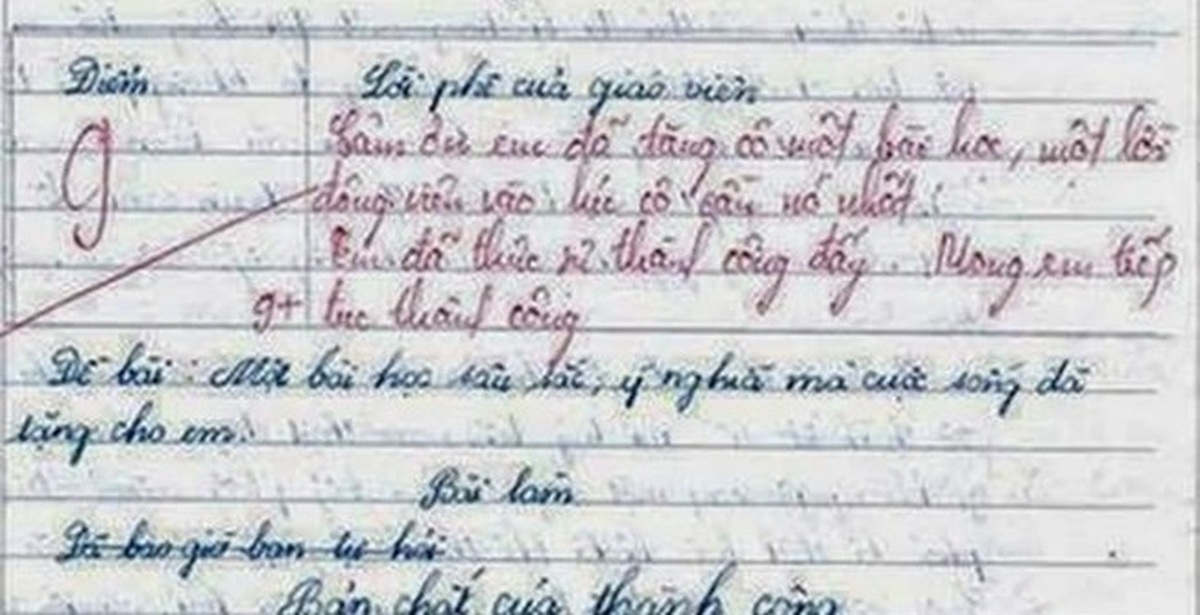 Điểm Lời phê của giáo viên
9 Cảm ơn em đã tặng cô một bài học, một lời
động viên vào lúc cô cần nó nhất.
Em đã thực sự thành công đấy. Mong em tiếp
9+ tục thành công
Đề bài: Một bài học sâu sắc, ý nghĩa mà cuộc sống đã
tặng cho em.
Bài làm
Đã bao giờ bạn tự hỏi
Bản chất của thành công